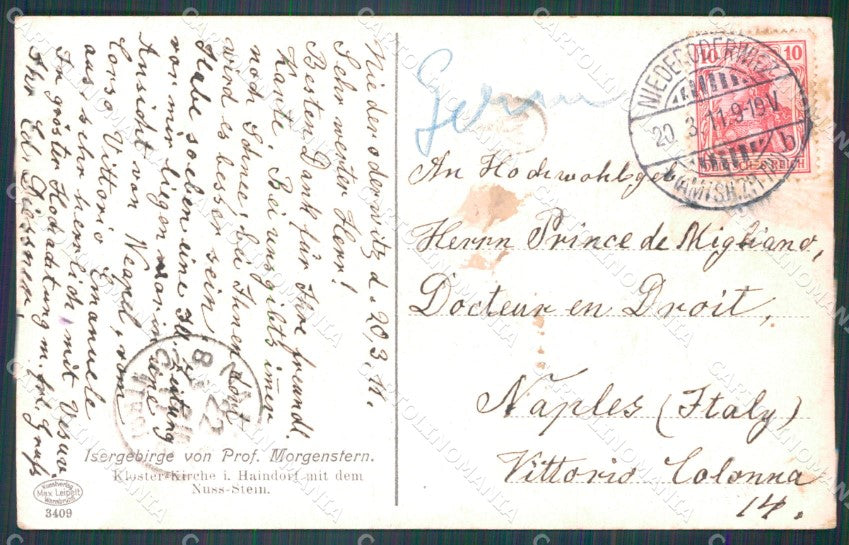 Niederoderwitz d. 20,3.11.
Sehr werter Herr!
Besten Dank für Ihre freundl.
Karte. Bei uns giebts imer
noch Schnee, bei Ihnen dort
wird es besser sein.
Habe soeben eine Ill. Zeitung
vor mir liegen worin eine
Ansicht von Neapel, vom
Corso Vittorio Emanuele
aus, sehr herrlich, mit Vesuv.
In gröster Hochachtung m. frdl. Gruß
Ihr Ed.
Isergebirge von Prof. Morgenstern.
Kloster-Kirche i. Haindorf mit dem
Nuss-Stein.
Kunstverlag
Max Leipelt
Warmbrunn
3409
10 10
NIEDERODERWITZ
20.3.11.9-10V.
b
An Hochwohlgeb
Herrn Prince de Migliano,
Docteur en Droit,
Naples (Italy)
Vittorio Colonna
14.
CARTOLINOMANIA